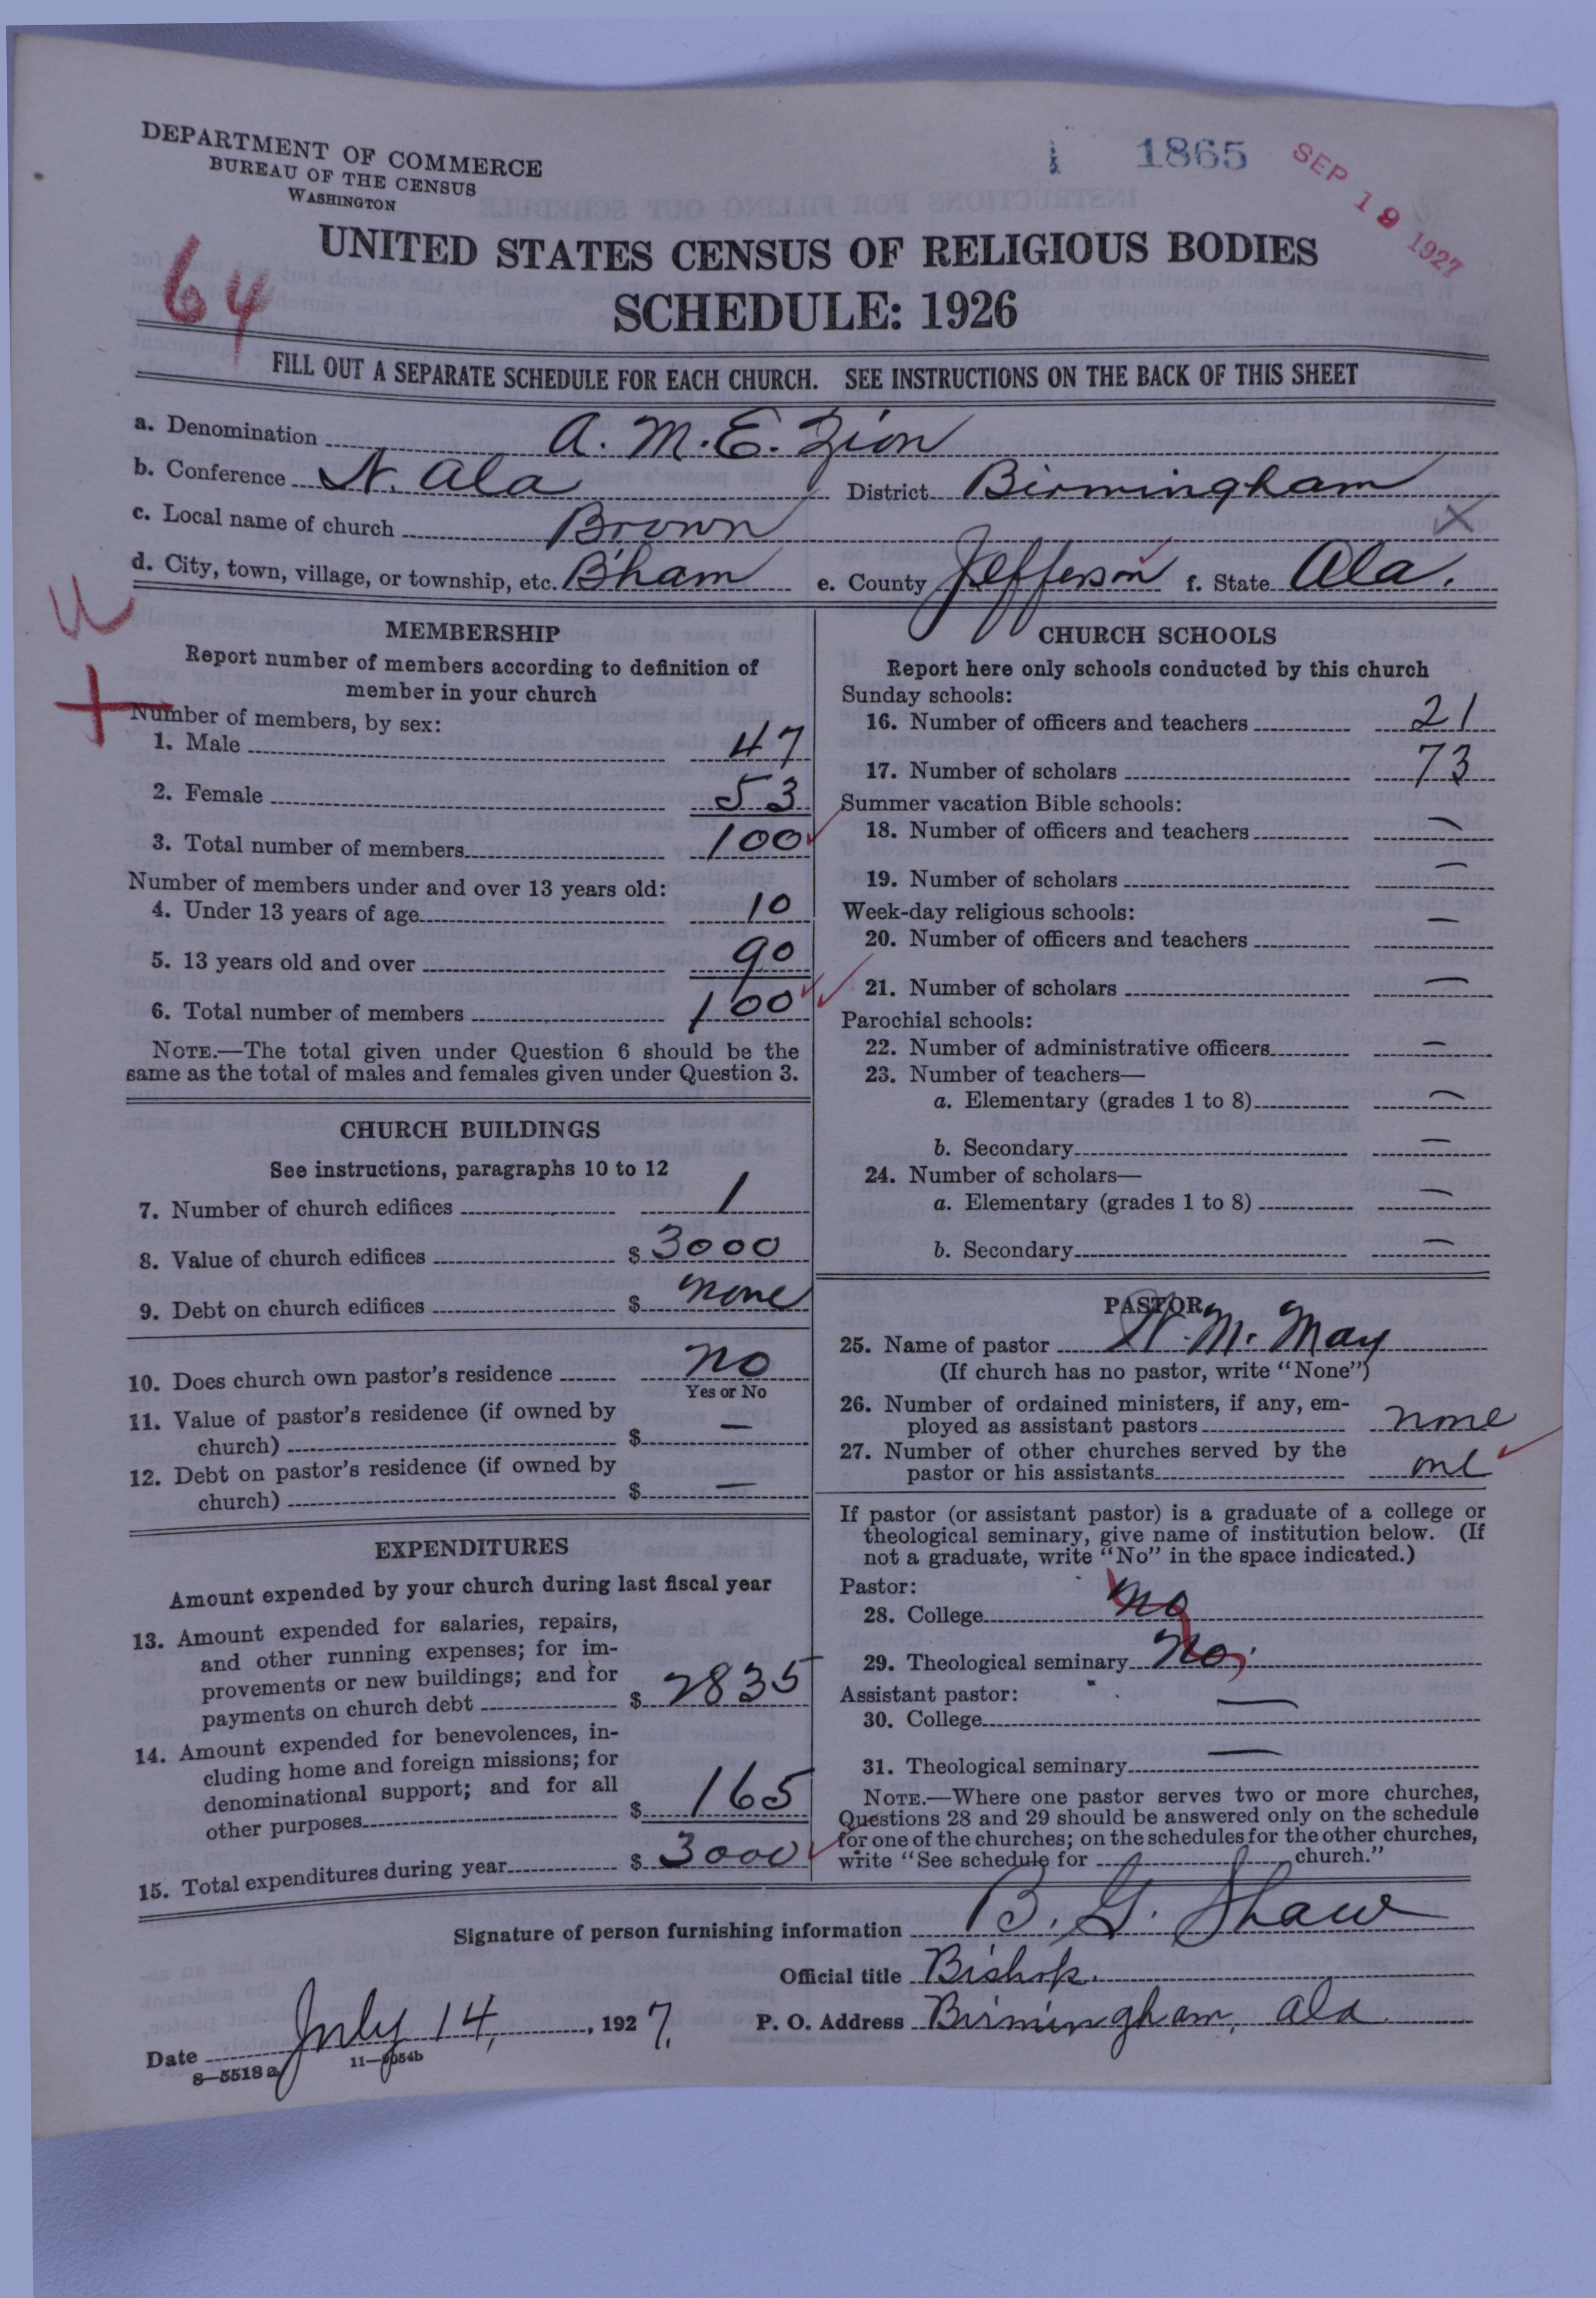 DEPARTMENT OF COMMERCE
BUREAU OF THE CENSUS
WASHINGTON
1865
SEP 19 1927
64
UNITED STATES CENSUS OF RELIGIOUS BODIES
SCHEDULE: 1926
FILL OUT A SEPARATE SCHEDULE FOR EACH CHURCH. SEE INSTRUCTIONS ON THE BACK OF THIS SHEET
a. Denomination A. M. E. Zion
b. Conference N. Ala District Birmingham
c. Local name of church Brown
d. City, town, village, or township, etc. B'ham e. County Jefferson f. State Ala.
MEMBERSHIP
Report number of members according to definition of
member in your church
Number of members, by sex:
1. Male 47
2. Female 53
3. Total number of members 100
Number of members under and over 13 years old:
4. Under 13 years of age 10
5. 13 years old and over 90
6. Total number of members 100
NOTE.—The total given under Question 6 should be the
same as the total of males and females given under Question 3.
CHURCH BUILDINGS
See instructions, paragraphs 10 to 12
7. Number of church edifices 1
8. Value of church edifices $ 3000
9. Debt on church edifices $ none
10. Does church own pastor's residence no
Yes or No
11. Value of pastor's residence (if owned by
church) $ —
12. Debt on pastor's residence (if owned by
church) $ —
EXPENDITURES
Amount expended by your church during last fiscal year
13. Amount expended for salaries, repairs,
and other running expenses; for im-
provements or new buildings; and for
payments on church debt $ 2835
14. Amount expended for benevolences, in-
cluding home and foreign missions; for
denominational support; and for all
other purposes $ 165
15. Total expenditures during year $ 3000
CHURCH SCHOOLS
Report here only schools conducted by this church
Sunday schools:
16. Number of officers and teachers 21
17. Number of scholars 73
Summer vacation Bible schools:
18. Number of officers and teachers —
19. Number of scholars —
Week-day religious schools:
20. Number of officers and teachers —
21. Number of scholars —
Parochial schools:
22. Number of administrative officers —
23. Number of teachers—
a. Elementary (grades 1 to 8) —
b. Secondary —
24. Number of scholars—
a. Elementary (grades 1 to 8) —
b. Secondary —
PASTOR
25. Name of pastor W. M. May
(If church has no pastor, write "None")
26. Number of ordained ministers, if any, em-
ployed as assistant pastors none
27. Number of other churches served by the
pastor or his assistants one
If pastor (or assistant pastor) is a graduate of a college or
theological seminary, give name of institution below. (If
not a graduate, write "No" in the space indicated.)
Pastor:
28. College no
29. Theological seminary no
Assistant pastor:
30. College —
31. Theological seminary —
NOTE.—Where one pastor serves two or more churches,
Questions 28 and 29 should be answered only on the schedule
for one of the churches; on the schedules for the other churches,
write "See schedule for church."
Signature of person furnishing information B. G. Shaw
Official title Bishop.
Date July 14, 1927. P. O. Address Birmingham, Ala
8—5518 a 11—9054b